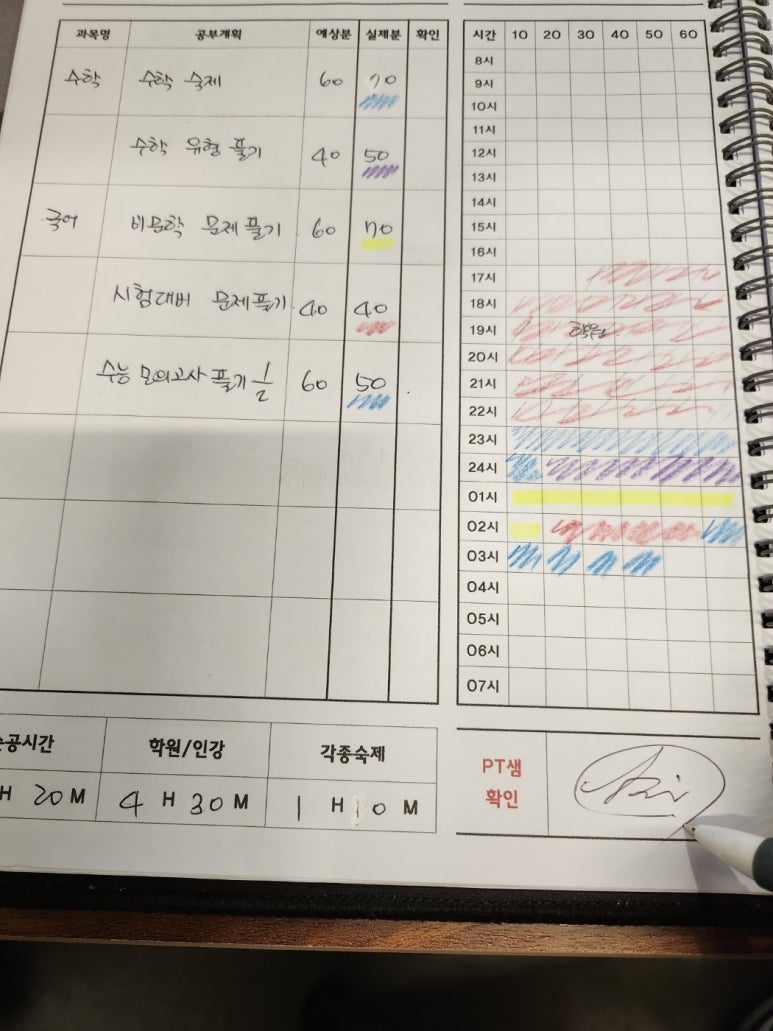 과목명 공부계획 예상분 실제분 확인
수학 수학 숙제 60 70
수학 유형 풀기 40 50
국어 비문학 문제풀기 60 70
시험대비 문제풀기 40 40
수능 모의고사 풀기 1/2 60 50
시간 10 20 30 40 50 60
8시
9시
10시
11시
12시
13시
14시
15시
16시
17시
18시
19시 학원
20시
21시
22시
23시
24시
01시
02시
03시
04시
05시
06시
07시
공시간 학원/인강 각종숙제
H 20 M 4 H 30 M 1 H 10 M
PT샘
확인